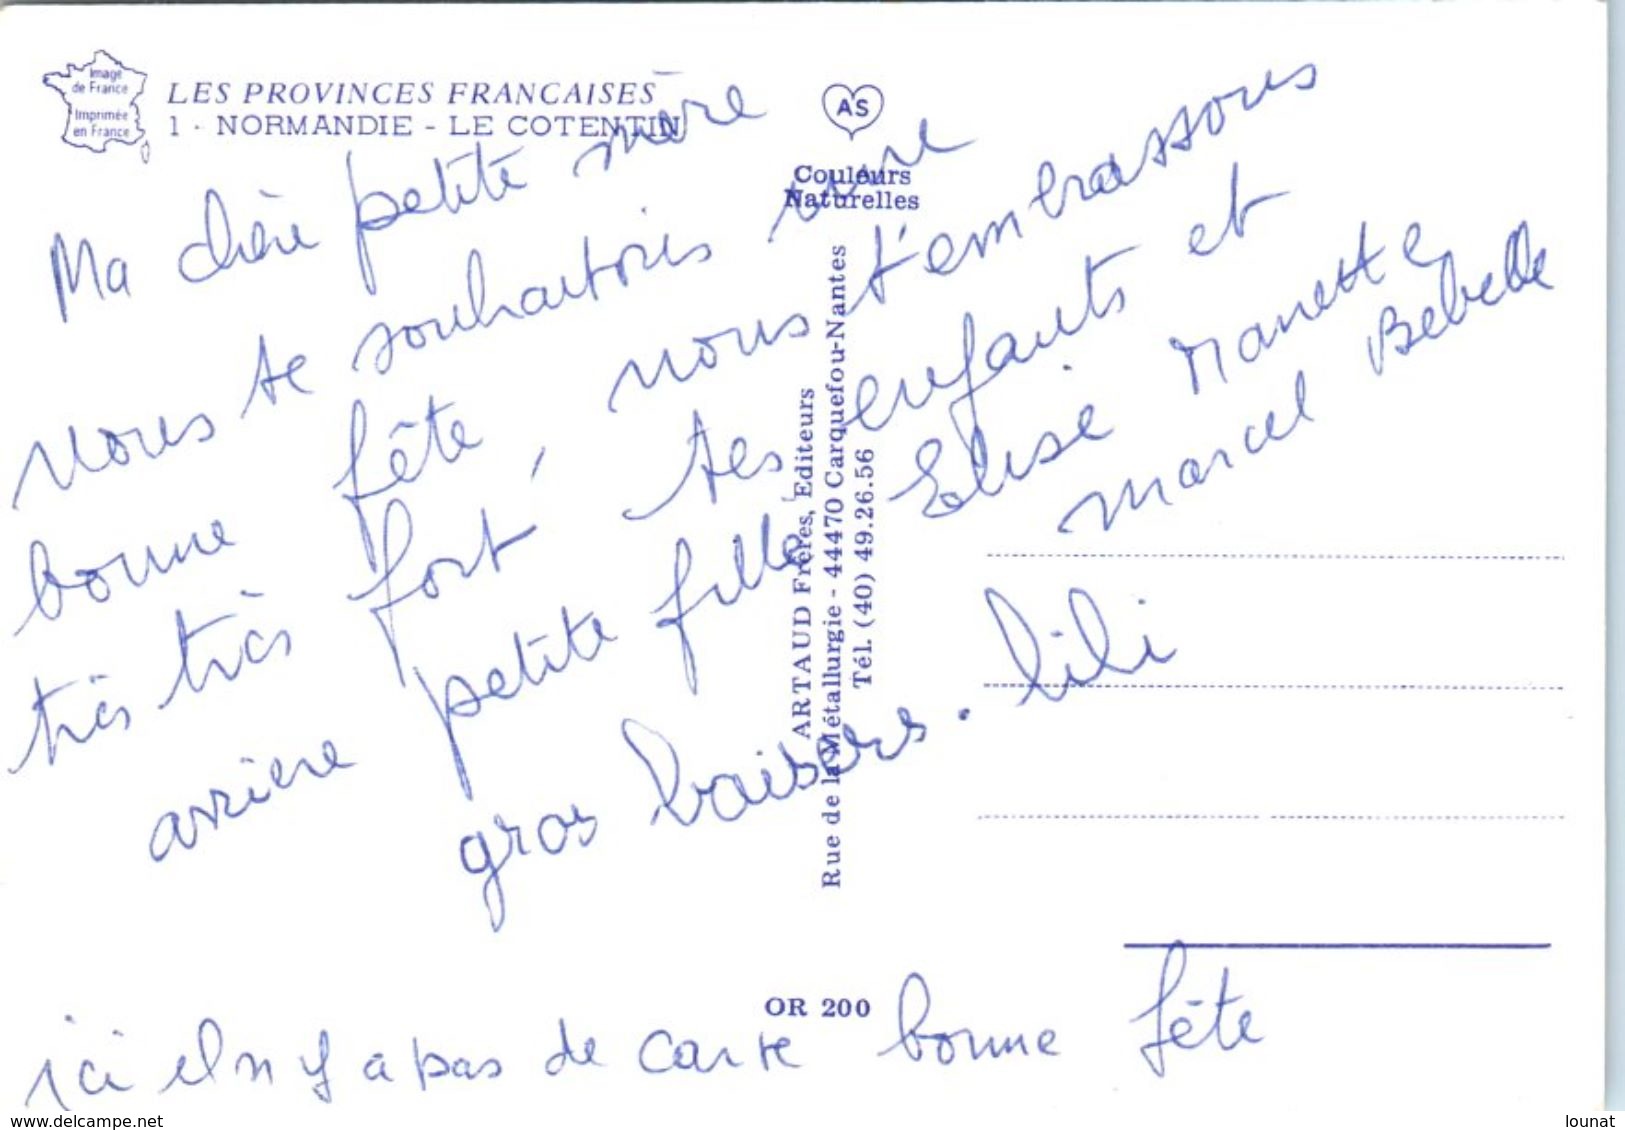 Image
de France
Imprimée
en France
LES PROVINCES FRANCAISES
1 - NORMANDIE - LE COTENTIN
AS
Couleurs
Naturelles
Ma chère petite mère
nous te souhaitons une
bonne fête, nous t'embrassons
très très fort, tes enfants et
arrière petite fille Elise Manette
Marcel Bebelle
gros baisers. lili
ARTAUD Frères, Editeurs
Rue de la Métallurgie - 44470 Carquefou-Nantes
Tél. (40) 49.26.56
OR 200
ici il n y a pas de carte bonne fête
www.delcampe.net
lounat